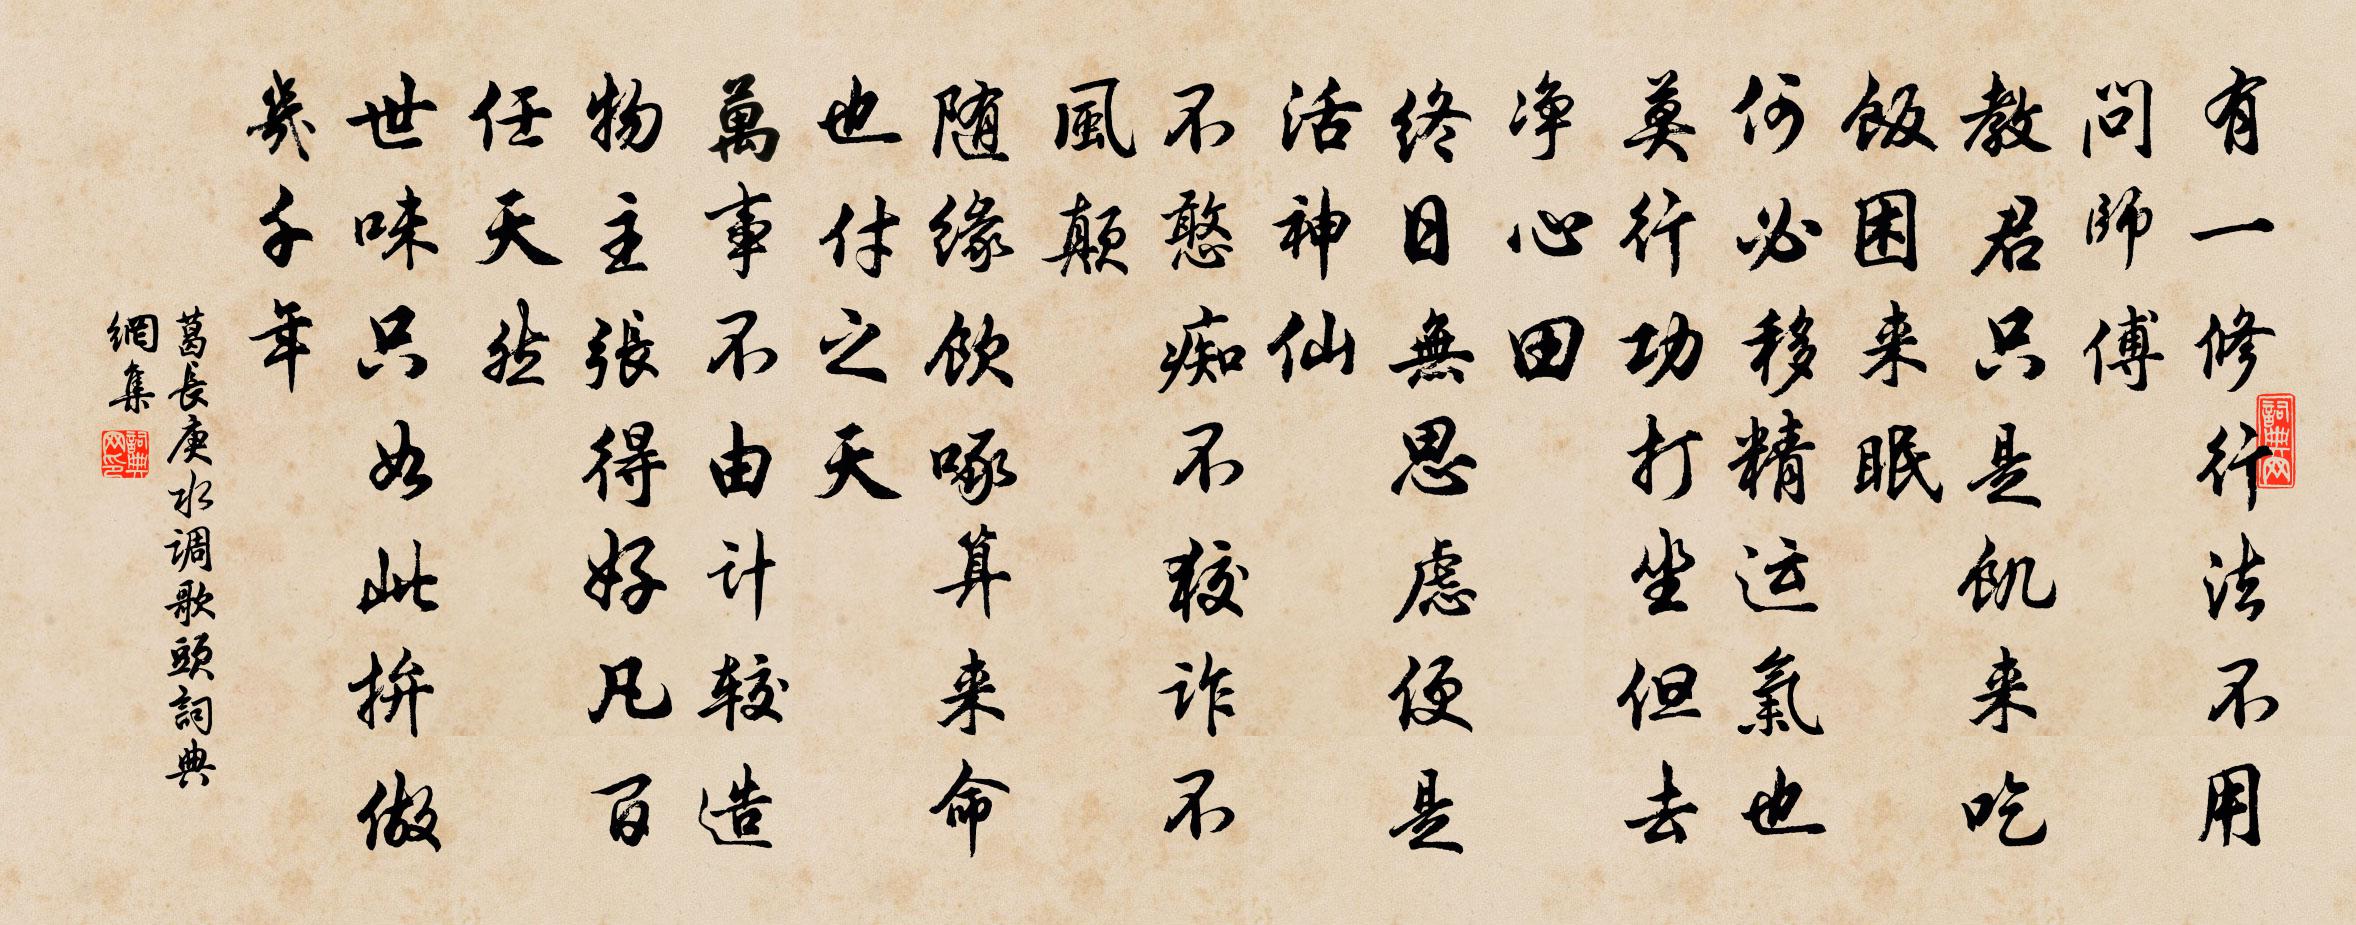 有一修行法不用
問師傅
教君只是飢来吃
飯困来眠
何必移精运氣也
莫行功打坐但去
净心田
終日無思虑便是
活神仙
不憨痴不狡诈不
風颠
随缘飲啄算来命
也付之天
萬事不由计较造
物主張得好凡百
任天然
世味只如此拚做
幾千年
葛長庚水调歌頭詞典
網集
詞典网
詞典网印